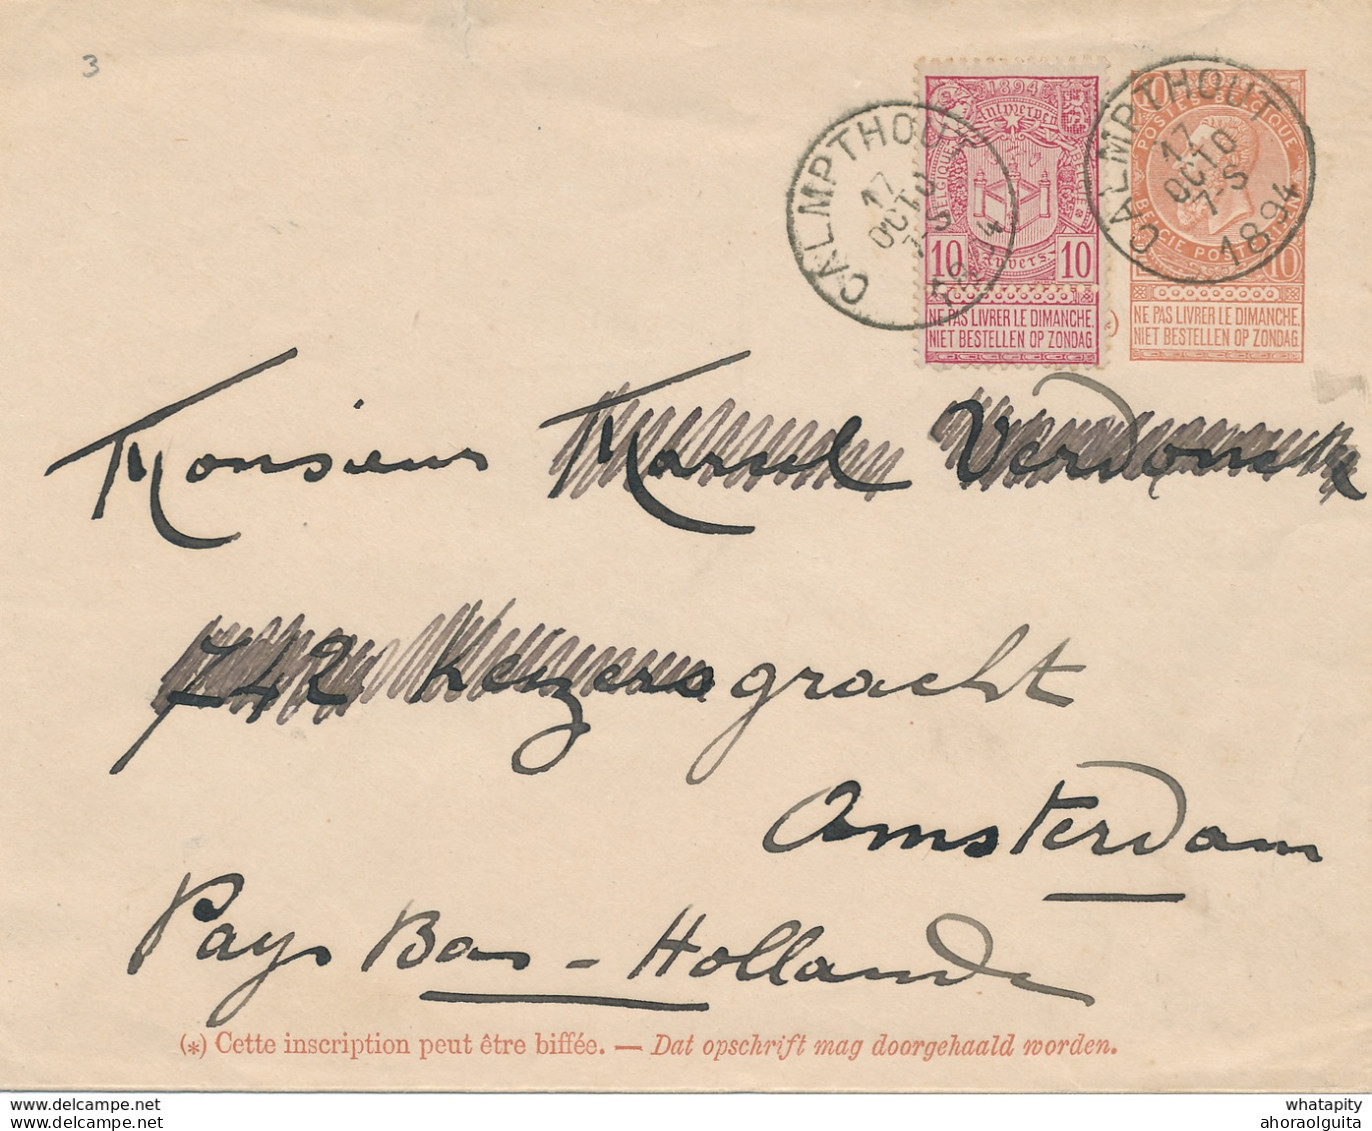 3
1894
Antwerpen
BELGIQUE
10 Anvers 10
NE PAS LIVRER LE DIMANCHE
NIET BESTELLEN OP ZONDAG
CALMPTHOUT
17
OCTO
7-S
1894
10
POSTES BELGIQUE
BELGIE POSTERIJEN
10
NE PAS LIVRER LE DIMANCHE.
NIET BESTELLEN OP ZONDAG
CALMPTHOUT
17
OCTO
7-S
1894
Monsieur Marcel Verdonck
742 Keizersgracht
Amsterdam
Pays Bas - Hollande
(*) Cette inscription peut être biffée. — Dat opschrift mag doorgehaald worden.
www.delcampe.net
whatapity
ahoraolguita